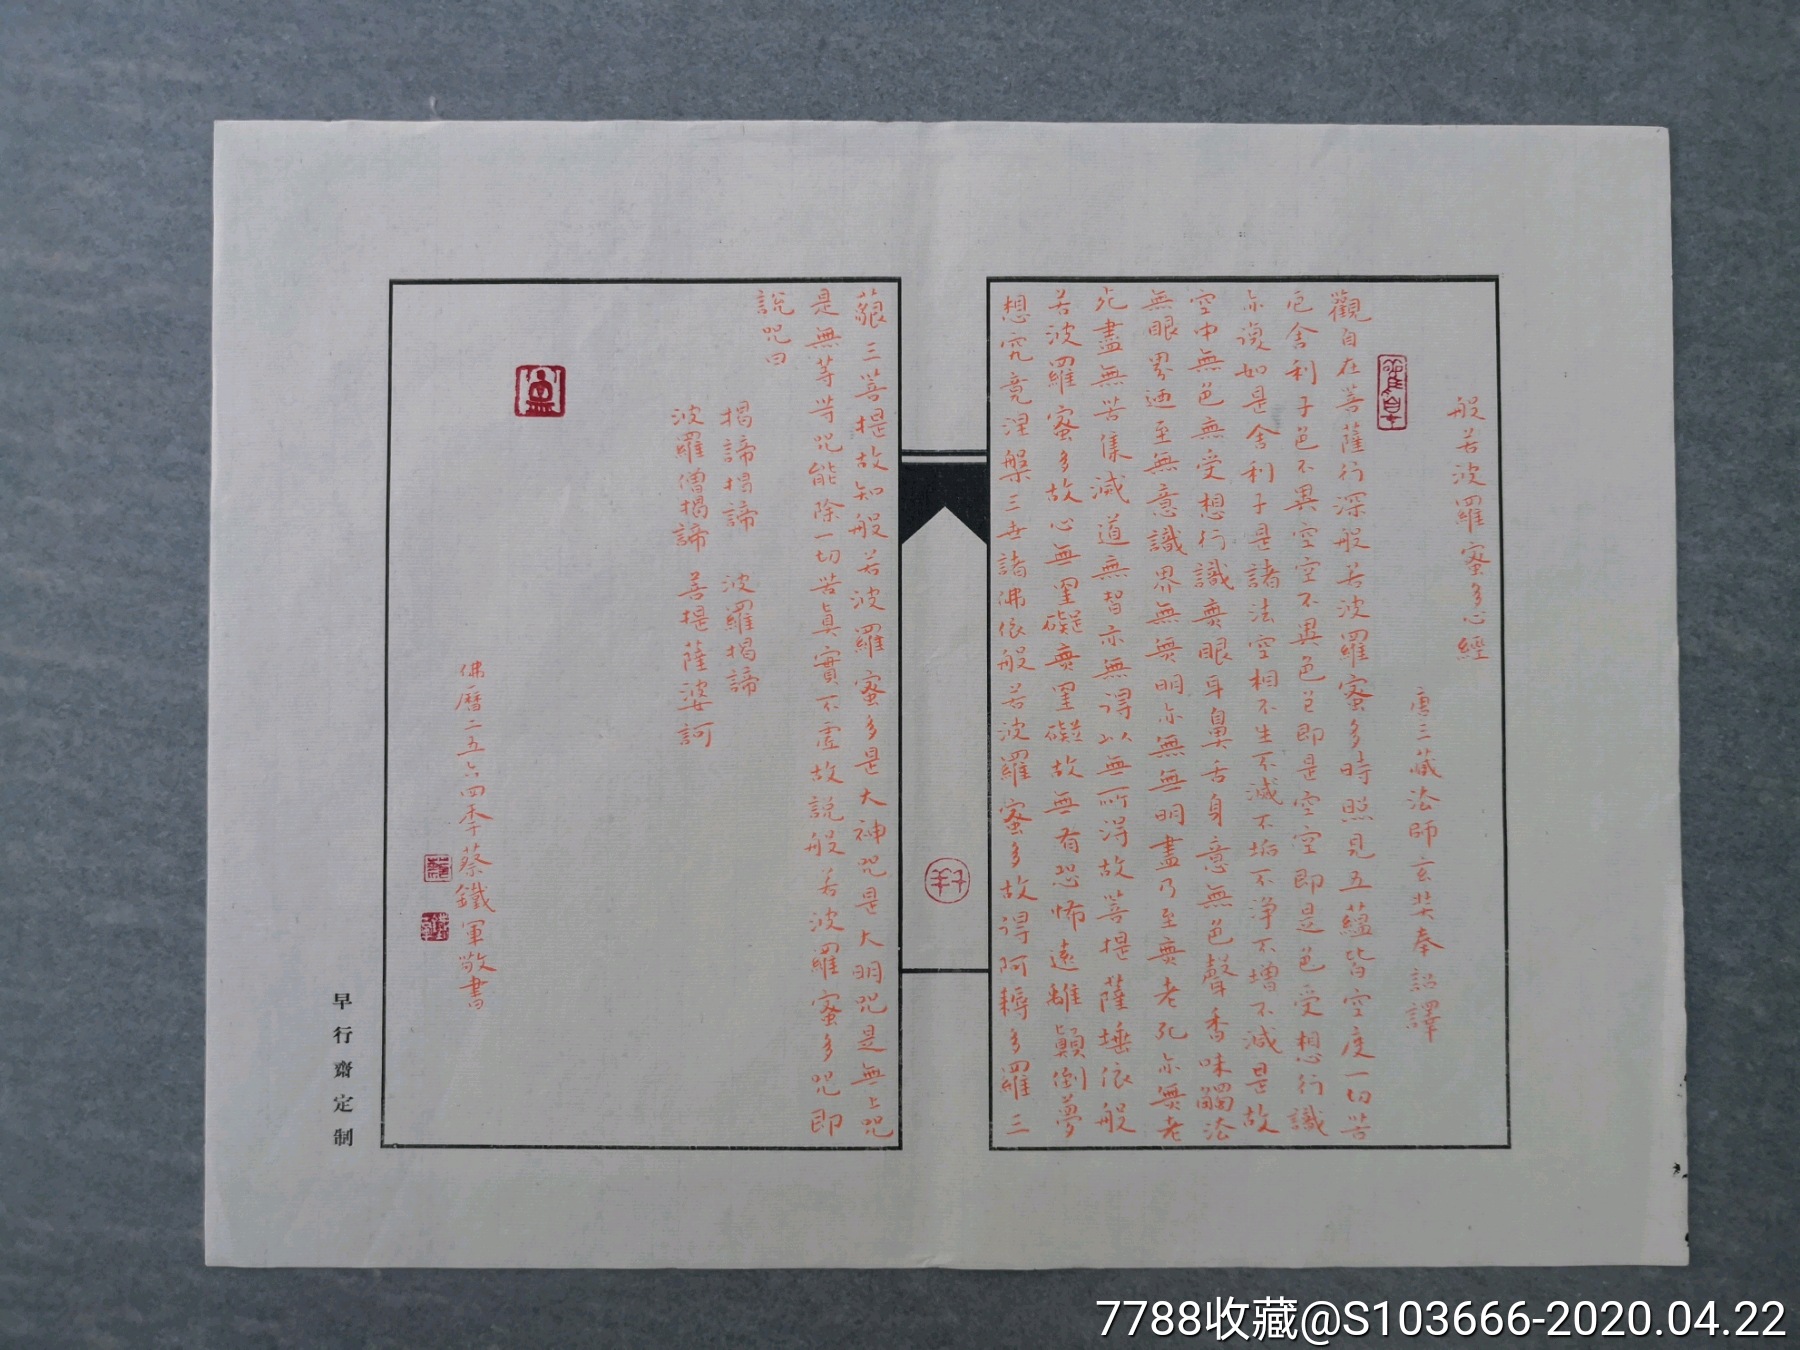 般若波羅蜜多心經
唐三藏法師玄奘奉詔譯
觀自在菩薩行深般若波羅蜜多時照見五蘊皆空度一切苦
厄舍利子色不異空空不異色色即是空空即是色受想行識
亦復如是舍利子是諸法空相不生不滅不垢不淨不增不減是故
空中無色無受想行識無眼耳鼻舌身意無色聲香味觸法
無眼界迺至無意識界無無明亦無無明盡乃至無老死亦無老
死盡無苦集滅道無智亦無得以無所得故菩提薩埵依般
若波羅蜜多故心無罣礙無罣礙故無有恐怖遠離顛倒夢
想究竟涅槃三世諸佛依般若波羅蜜多故得阿耨多羅三
藐三菩提故知般若波羅蜜多是大神咒是大明咒是無上咒
是無等等咒能除一切苦真實不虛故說般若波羅蜜多咒即
說咒曰
揭諦揭諦 波羅揭諦
波羅僧揭諦 菩提薩婆訶
佛曆二五六四季蔡鐵軍敬書
早行齋定制
7788收藏@S103666-2020.04.22